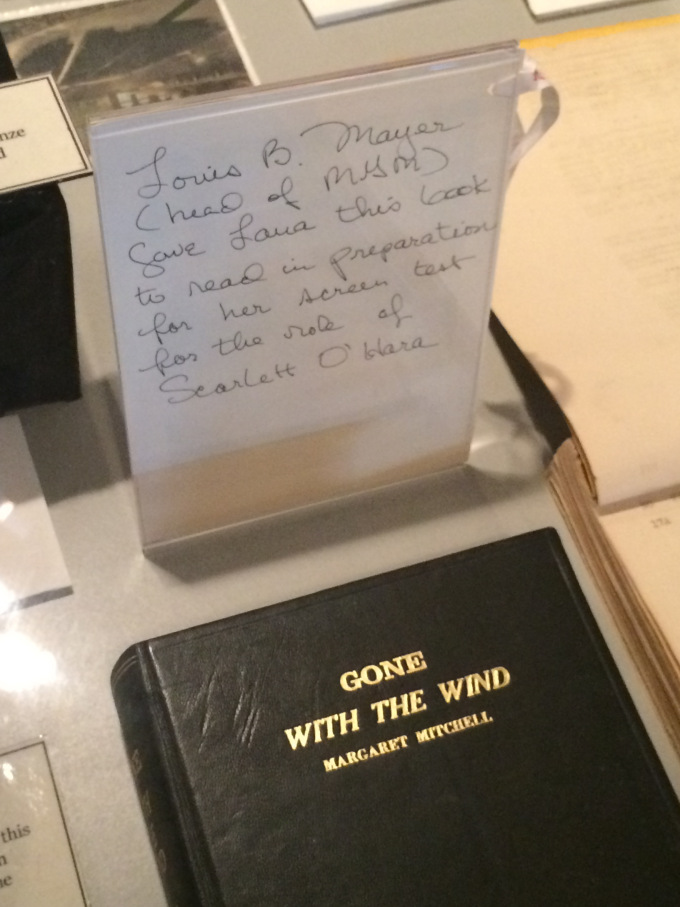 nze
d
Louis B. Mayer
(head of MGM)
gave Lana this book
to read in preparation
for her screen test
for the role of
Scarlett O'Hara
GONE
WITH THE WIND
MARGARET MITCHELL
this
n
ne